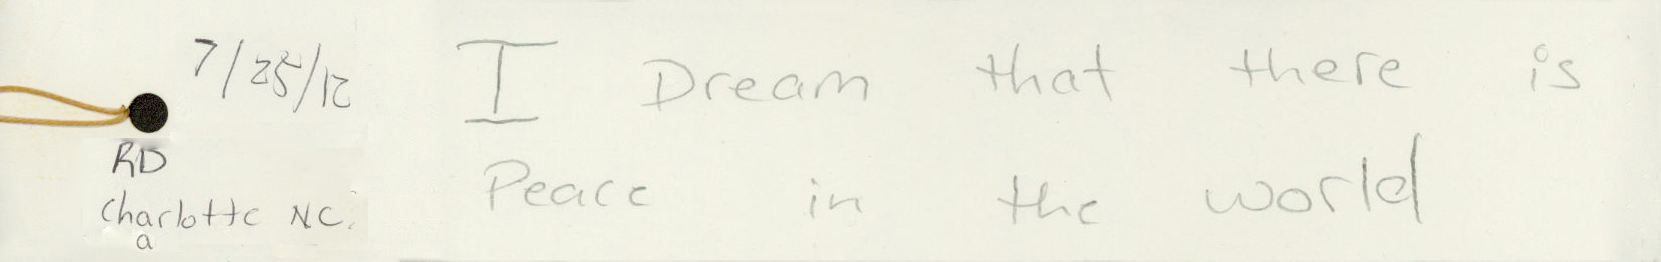 7/25/12
RD
Charlotte NC.
a
I Dream that there is
Peace in the world